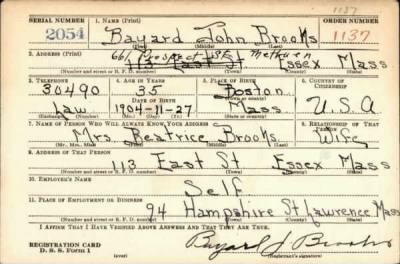 1137
SERIAL NUMBER 1. NAME (Print) ORDER NUMBER
2054 Bayard John Brooks 1137
(First) (Middle) (Last)
2. ADDRESS (Print)
66 Prospect St. Methuen
113 East St Essex Mass
(Number and street or R. F. D. number) (Town) (County) (State)
3. TELEPHONE 4. AGE IN YEARS 5. PLACE OF BIRTH 6. COUNTRY OF CITIZENSHIP
30490 35 Boston
(Town or county)
DATE OF BIRTH
Law 1904-11-27 Mass U.S.A
(Exchange) (Number) (Mo.) (Day) (Yr.) (State or country)
7. NAME OF PERSON WHO WILL ALWAYS KNOW YOUR ADDRESS 8. RELATIONSHIP OF THAT PERSON
Mrs. Beatrice Brooks Wife
(Mr., Mrs., Miss) (First) (Middle) (Last)
9. ADDRESS OF THAT PERSON
113 East St Essex Mass
(Number and street or R. F. D. number) (Town) (County) (State)
10. EMPLOYER'S NAME
Self
11. PLACE OF EMPLOYMENT OR BUSINESS
94 Hampshire St Lawrence Mass
(Number and street or R. F. D. number) (Town) (County) (State)
I AFFIRM THAT I HAVE VERIFIED ABOVE ANSWERS AND THAT THEY ARE TRUE.
REGISTRATION CARD
D. S. S. Form 1 (over) Bayard J Brooks
(Registrant's signature)